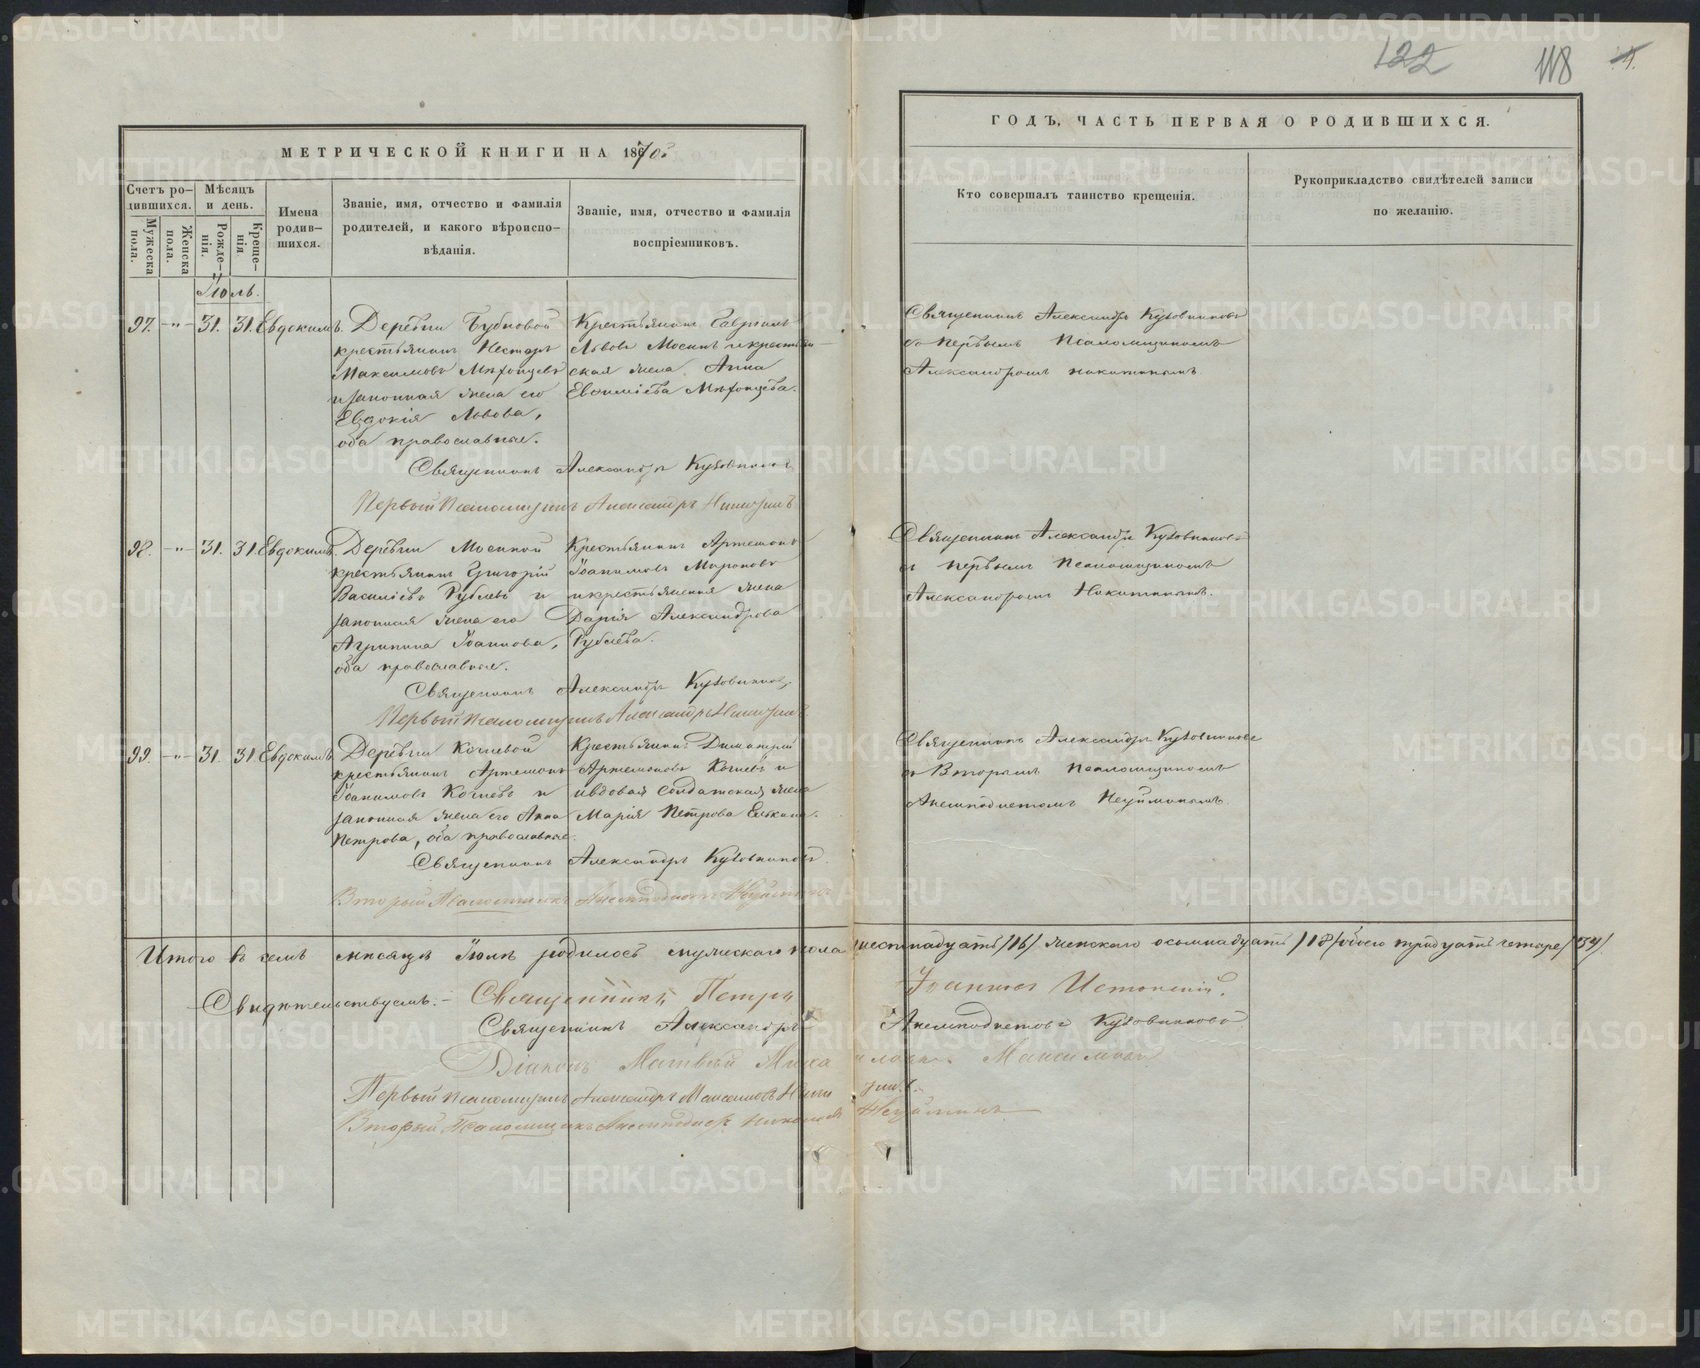 122 118
МЕТРИЧЕСКОЙ КНИГИ НА 1870й
ГОДЪ, ЧАСТЬ ПЕРВАЯ О РОДИВШИХСЯ.
Счетъ ро-
дившихся.
Мужеска пола.
Женска пола.
Мѣсяцъ
и день.
Рожде-
нія.
Креще-
нія
Имена
родив-
шихся.
Званіе, имя, отчество и фамилія
родителей, и какого вѣроиспо-
вѣданія.
Званіе, имя, отчество и фамилія
воспріемниковъ.
Кто совершалъ таинство крещенія.
Рукоприкладство свидѣтелей записи
по желанію.
Іюль.
97. -"- 31. 31. Евдокимъ.
Деревни Бубновой
крестьянинъ Несторъ
Максимовъ
и законная жена его
Евдокія Львова,
оба православные.
Крестьянинъ Гавріилъ
Львовъ Мосинъ и крестьян-
ская жена Анна
Евѳиміева
Священникъ Александръ
съ первымъ Псаломщикомъ
Александромъ Никитинымъ
Священникъ Александръ
Первый Псаломщикъ Александръ Никитинъ
98. -"- 31. 31. Евдокимъ.
Деревни Мосиной
крестьянинъ Григорій
Василіевъ Рублевъ и
законная жена его
Агрипина Іоаннова,
оба православные.
Крестьянинъ Артемонъ
Іоакимовъ Мироновъ
и крестьянская жена
Дарія Александрова
Рублева.
Священникъ Александръ
съ первымъ Псаломщикомъ
Александромъ Никитинымъ.
Священникъ Александръ
Первый Псаломщикъ Александръ Никитинъ
99. -"- 31. 31. Евдокимъ
Деревни Кочневой
крестьянинъ Артемонъ
Іоакимовъ Кочневъ и
законная жена его Анна
Петрова, оба православные.
Крестьянинъ Димитрій
Артемоновъ Кочневъ и
вдовая солдатская жена
Марія Петрова
Священникъ Александръ
съ Вторымъ Псаломщикомъ
Анемподистомъ Неуйминымъ.
Священникъ Александръ
Второй Псаломщикъ Анемподистъ Неуйминъ
Итого въ семъ мѣсяцѣ Іюлѣ родилось мужескаго пола шестнадцать /16/ женскаго осьмнадцать /18/ обоего тридцать четыре /34/.
Свидѣтельствуемъ. – Священникъ Петръ Іоанновъ
Священникъ Александръ Анемподистовъ
Діаконъ Матвѣй Михайловъ Максимовъ
Первый псаломщикъ Александръ Максимовъ Никитинъ.
Второй Псаломщикъ Анемподистъ Николаевъ Неуйминъ
METRIKI.GASO-URAL.RU